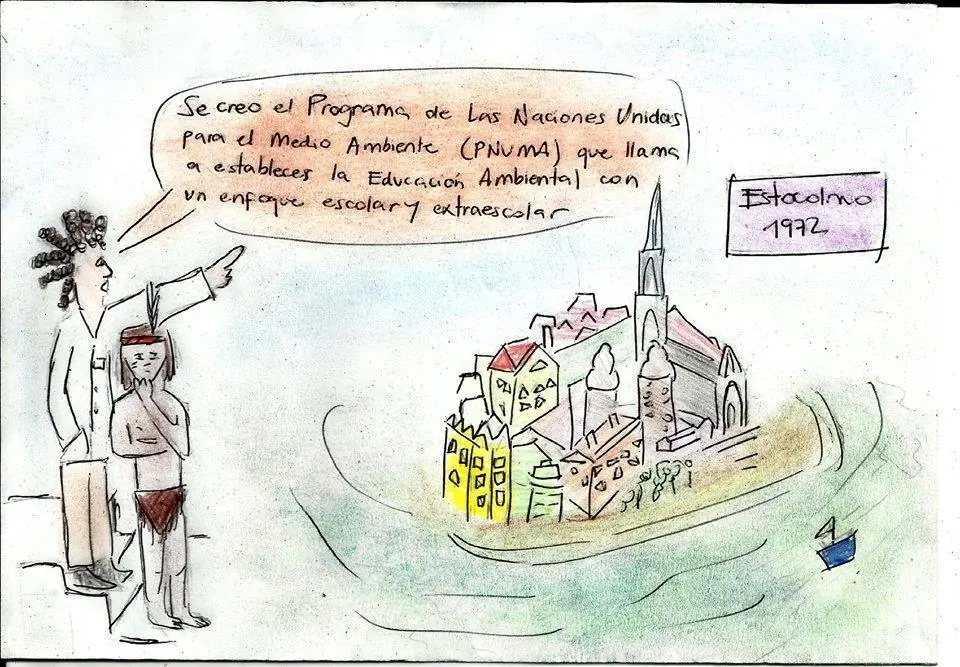 Se creo el Programa de Las Naciones Unidas
para el Medio Ambiente (PNUMA) que llama
a establecer la Educación Ambiental con
un enfoque escolar y extraescolar
Estocolmo
1972